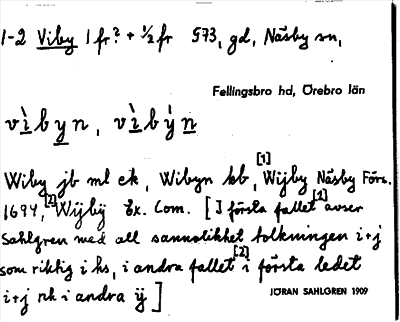 1-2 Viby 1 fr? + ½ fr 573, gd, Näsby sn,
Fellingsbro hd, Örebro län
vìbyn, vìbýn
Wiby jb ml ek, Wibyn kb,[1] Wijby Näsby Förs.
1694,[2] Wÿbÿ Ex. Com. [I första fallet[1] avser
Sahlgren med all sannolikhet tolkningen i+j
som riktig i hs, i andra fallet[2] i första ledet
i+j rk i andra ÿ]
JÖRAN SAHLGREN 1909